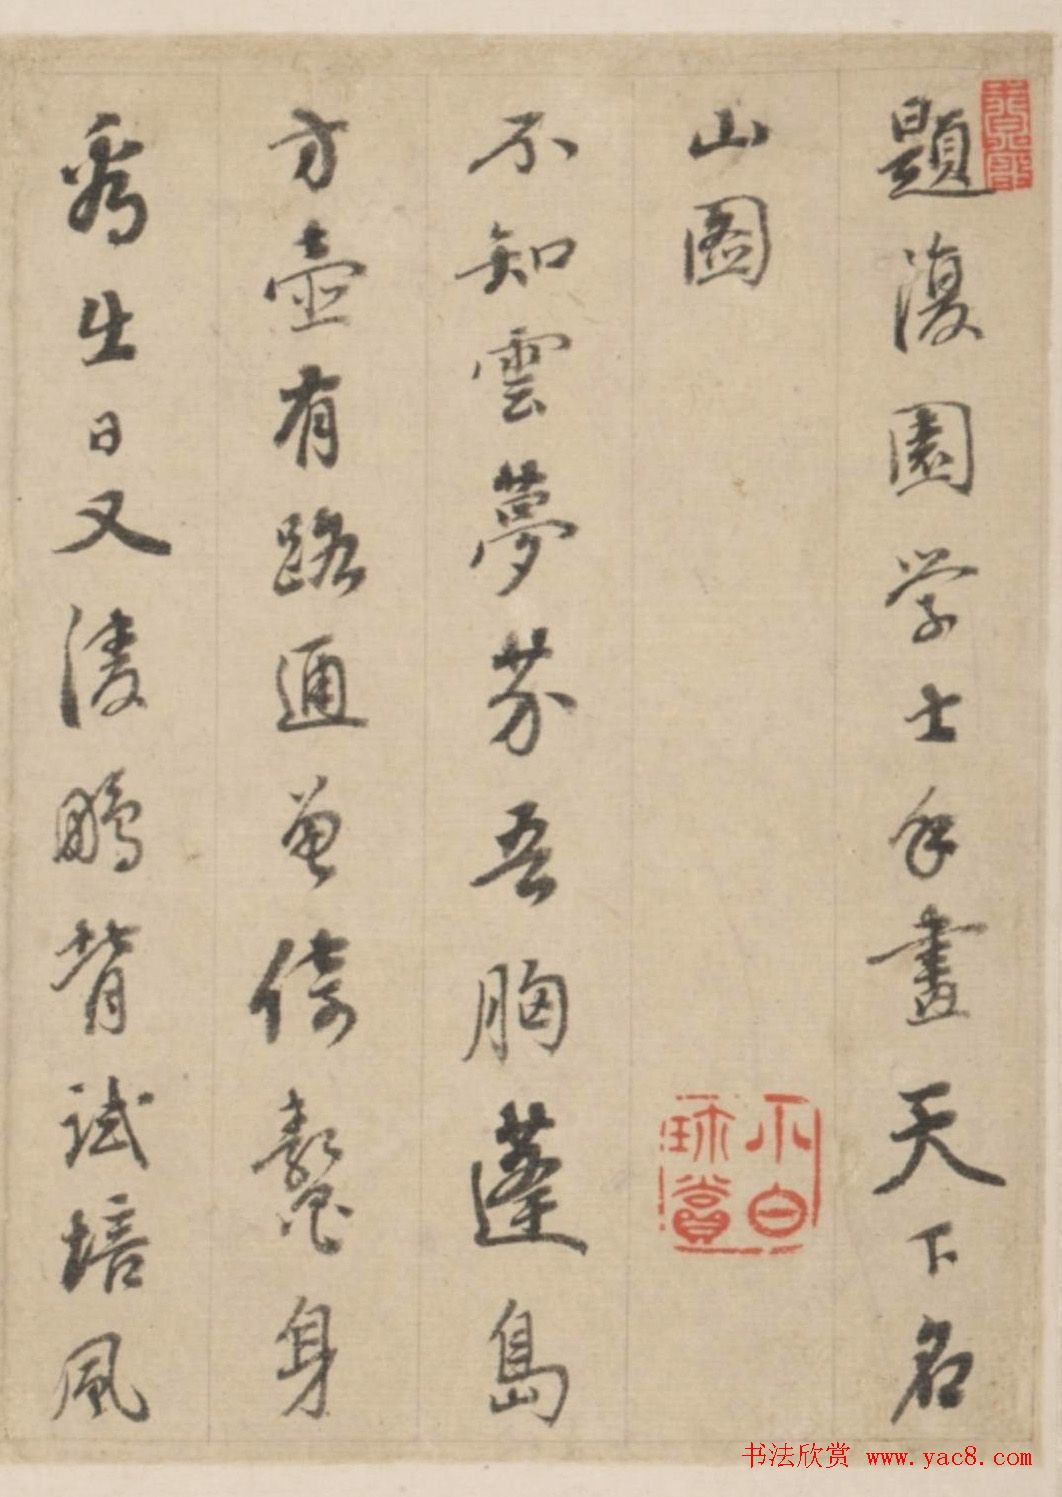 題復園学士手畫天下名
山圖
不知雲夢芥吾胸蓬島
方壺有路通曾倚鼇身
看生日又凌鵬背試培風
书法欣赏 www.yac8.com